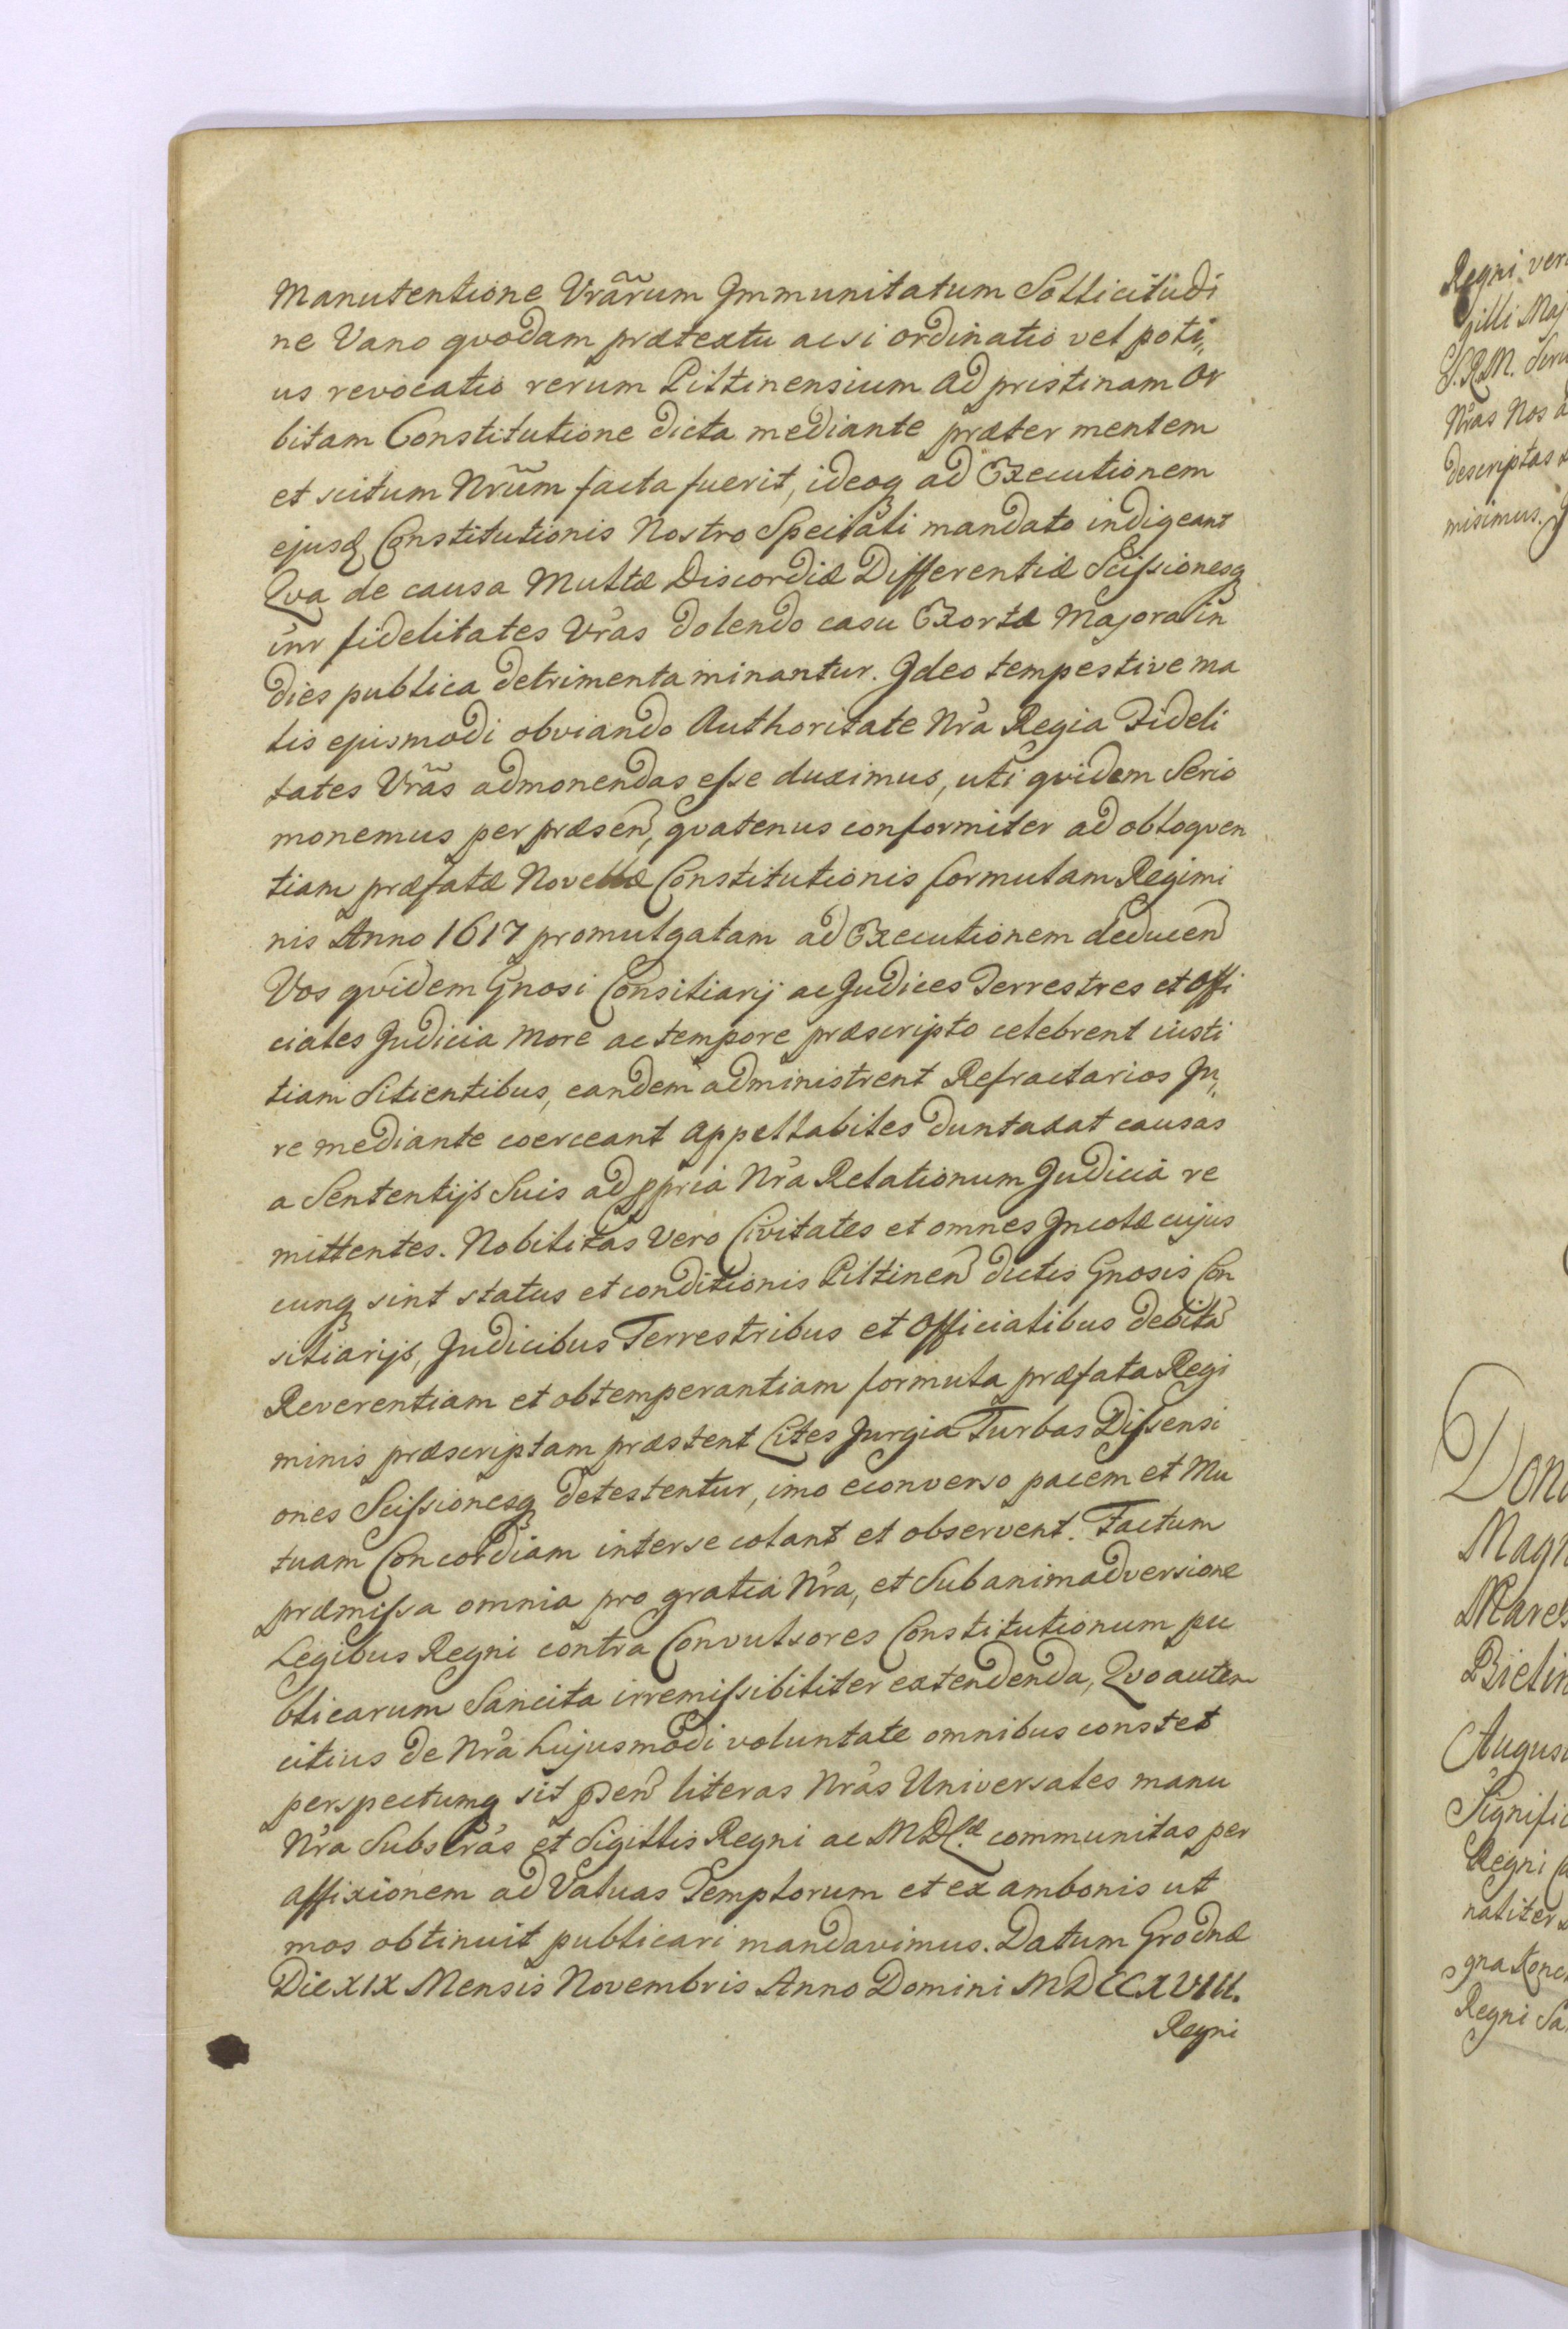 Manutentione Vrãrum Immunitatum Sollicitudi
ne Vano qvodam prætextu acsi ordinatio vel poti„
us revocatio rerum Piltinensium ad pristinam Or
bitam Constitutione dicta mediante præter mentem
et scitum Nrũm facta fuerit, ideoq ad Executionem
ejusd Constitutionis Nostro Speciali mandato indigeant
Qva de causa Multæ Discordiæ Differentiæ Scissionesq
inr fidelitates Vras dolendo casu Exortæ Majora in
dies publica detrimenta minantur. Ideo tempestive ma
lis ejusmodi obviando Authoritate Nra Regia Fideli
tates Vrãs admonendas esse duximus, uti qvidem Serio
monemus per præsen, qvatenus conformiter ad obloqven
tiam præfatæ Novellæ Constitutionis formulam Regimi
nis Anno 1617 promulgatam ad Executionem deducen
Vos qvidem Gnosi Consiliarij ac Judices Terrestres et Offi
ciales Judicia More ac tempore præscripto celebrent iusti
tiam sitientibus, eandem administrent Refractarios Ju„
re mediante coerceant Appellabiles duntaxat causas
a Sententijs Suis ad ppria Nra Relationum Judicia re
mittentes. Nobilitas Vero Civitates et omnes Incolæ cujus
cunq sint status et conditionis Piltinen dictis Gnosis Con
siliarijs, Judicibus Terrestribus et Officialibus debita
Reverentiam et obtemperantiam formula præfata Regi
minis præscriptam præstent Lites Jurgia Turbas Dissensi
ones Scissionesq detestentur, imo econverso pacem et Mu
tuam Concordiam inter se colant et observent. Factum
præmissa omnia pro gratia Nra, et Sub animadversione
Legibus Regni contra Convulsores Constitutionum pu
blicarum Sancita irremissibiliter extendenda, Qvo autem
citius de Nra hujusmodi voluntate omnibus constet
perspectumq sit pñen literas Nras Universales manu
Nra Subscras et Sigillis Regni ac MDLæ communitas per
affixionem ad Valuas Templorum et ex ambonis ut
mos obtinuit publicari mandavimus. Datum Grodnæ
Die XIX Mensis Novembris Anno Domini MDCCXVIII.
Regni
Regni ver
gilli Maj
S.R.M.
Nras Nos
descriptas
misimus.
Magn
Augus
Signific
Regni
naliter
Regni Sa